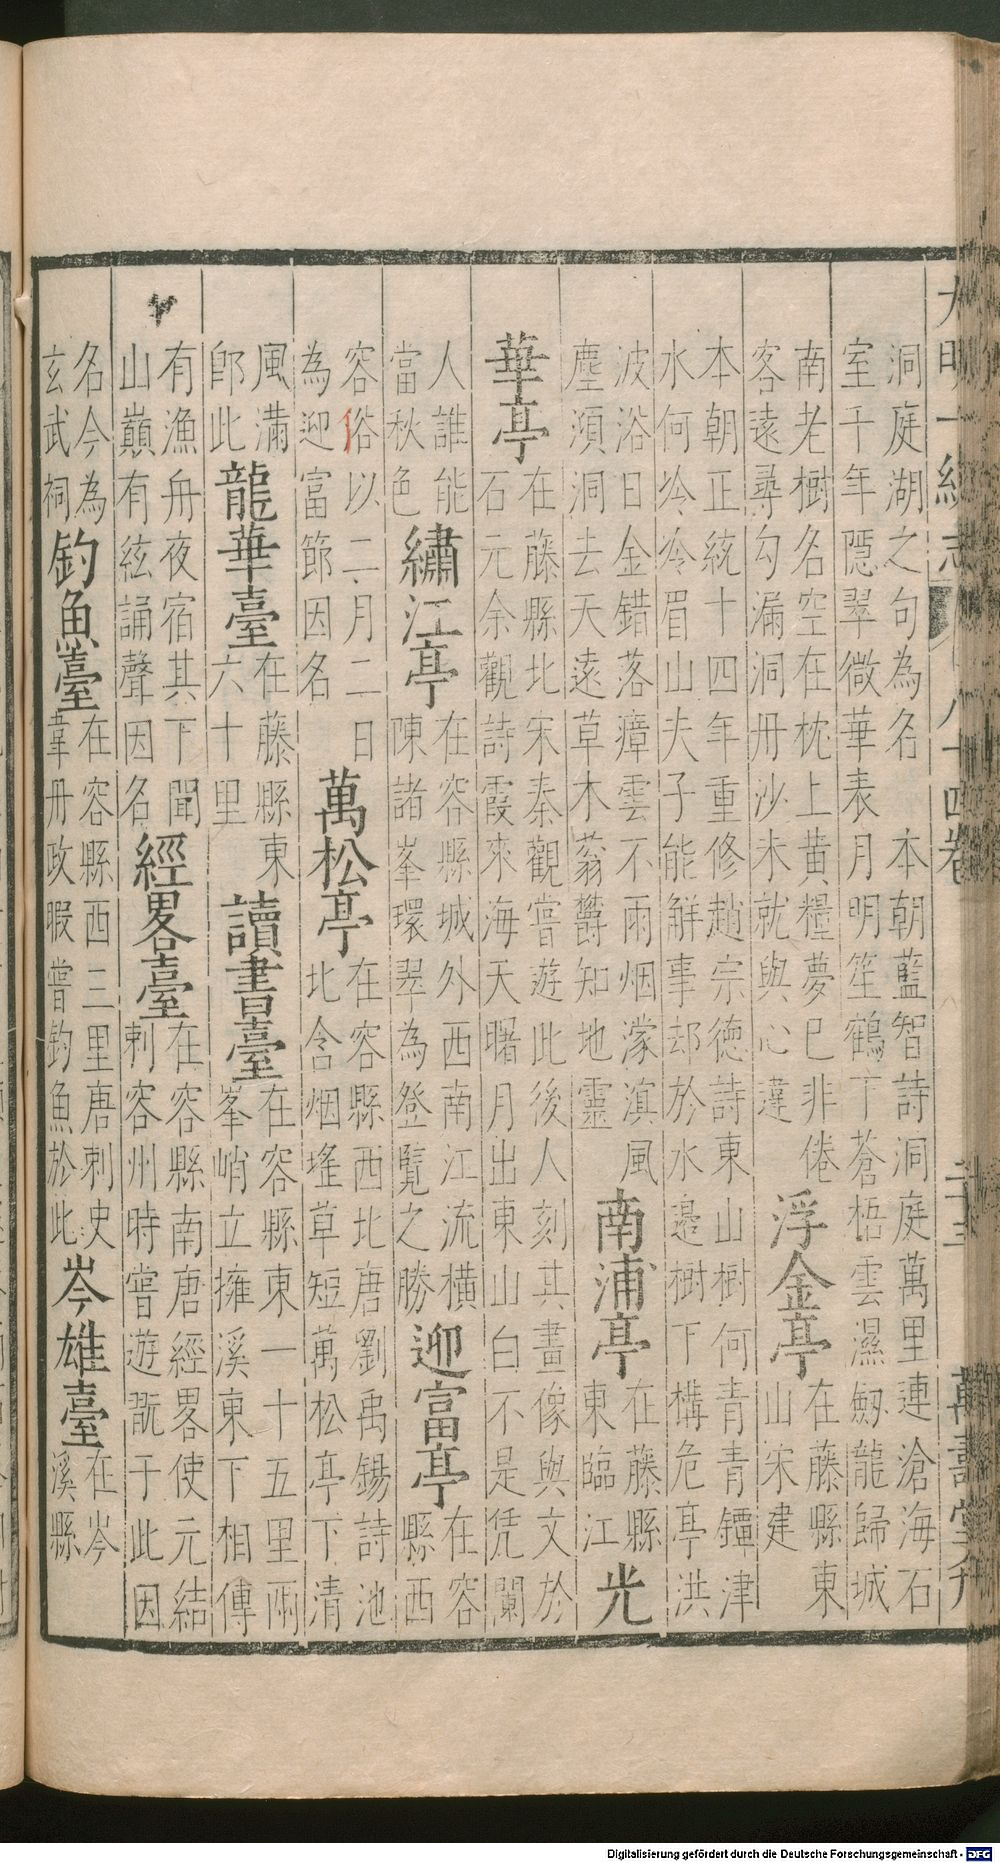 大明一統志 八十四卷 萬壽堂刋
洞庭湖之句為名 本朝藍智詩洞庭萬里連滄海石
室千年隱翠微華表月明笙鶴下蒼梧雲濕劔龍歸城
南老樹名空在枕上黃糧夢已非倦
客遠尋勾漏洞丹沙未就與心違
浮金亭
在藤縣東
山宋建
本朝正統十四年重修趙宗德詩東山樹何青青鐔津
水何泠泠眉山夫子能解事却於水邊樹下構危亭洪
波浴日金錯落瘴雲不雨烟濛滇風
塵澒洞去天遠草木蓊欝知地靈
南浦亭
在藤縣
東臨江
光
華亭
在藤縣北宋秦觀嘗遊此後人刻其畫像與文於
石元余觀詩霞來海天曙月出東山白不是凭闌
人誰能
當秋色
繡江亭
在容縣城外西南江流橫
陳諸峯環翠為登覽之勝
迎富亭
在容
縣西
容俗以二月二日
為迎富節因名
萬松亭
在容縣西北唐劉禹錫詩池
北含烟瑤草短萬松亭下清
風滿
郎此
龍華臺
在藤縣東
六十里
讀書臺
在容縣東一十五里兩
峯峭立擁溪東下相傳
有漁舟夜宿其下聞
山巔有絃誦聲因名
經畧臺
在容縣南唐經畧使元結
刺容州時嘗遊翫于此因
名今為
玄武祠
釣魚臺
在容縣西三里唐刺史
韋丹政暇嘗釣魚於此
岑雄臺
在岑
溪縣
Digitalisierung gefördert durch die Deutsche Forschungsgemeinschaft - DFG